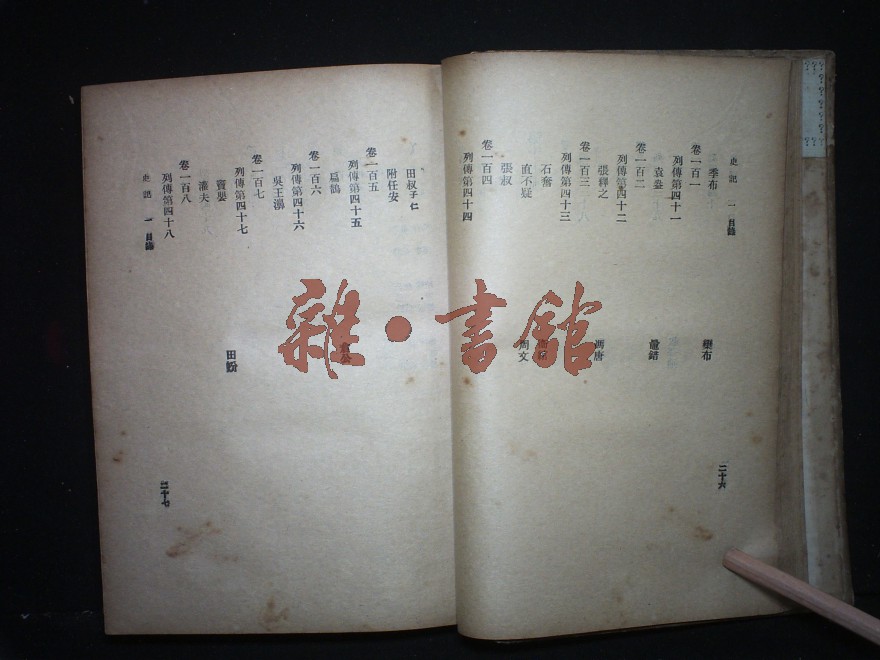 史記 一 目錄 二十六
季布 欒布
卷一百一
列傳第四十一
袁盎 鼂錯
卷一百二
列傳第四十二
張釋之 馮唐
卷一百三
列傳第四十三
石奮
直不疑 周文
張叔
卷一百四
列傳第四十四
田叔子仁
附任安
卷一百五
列傳第四十五
扁鵲
卷一百六
列傳第四十六
吳王濞
卷一百七
列傳第四十七
竇嬰 田蚡
灌夫
卷一百八
列傳第四十八
史記 一 目錄 二十七
雜·書館